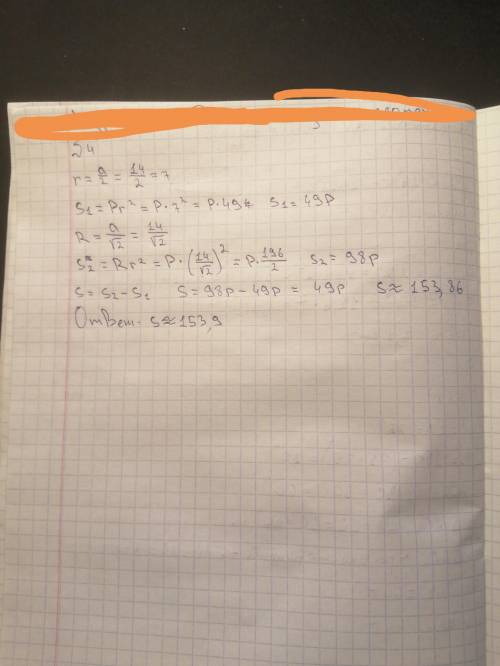 24
r = a/2 = 14/2 = 7
S1 = Pr² = P·7² = P·49 S1 = 49P
R = a/√2 = 14/√2
S2 = Rr² = P·(14/√2)² = P·196/2 S2 = 98P
S = S2 - S1 S = 98P - 49P = 49P S ≈ 153,86
Ответ: S ≈ 153,9